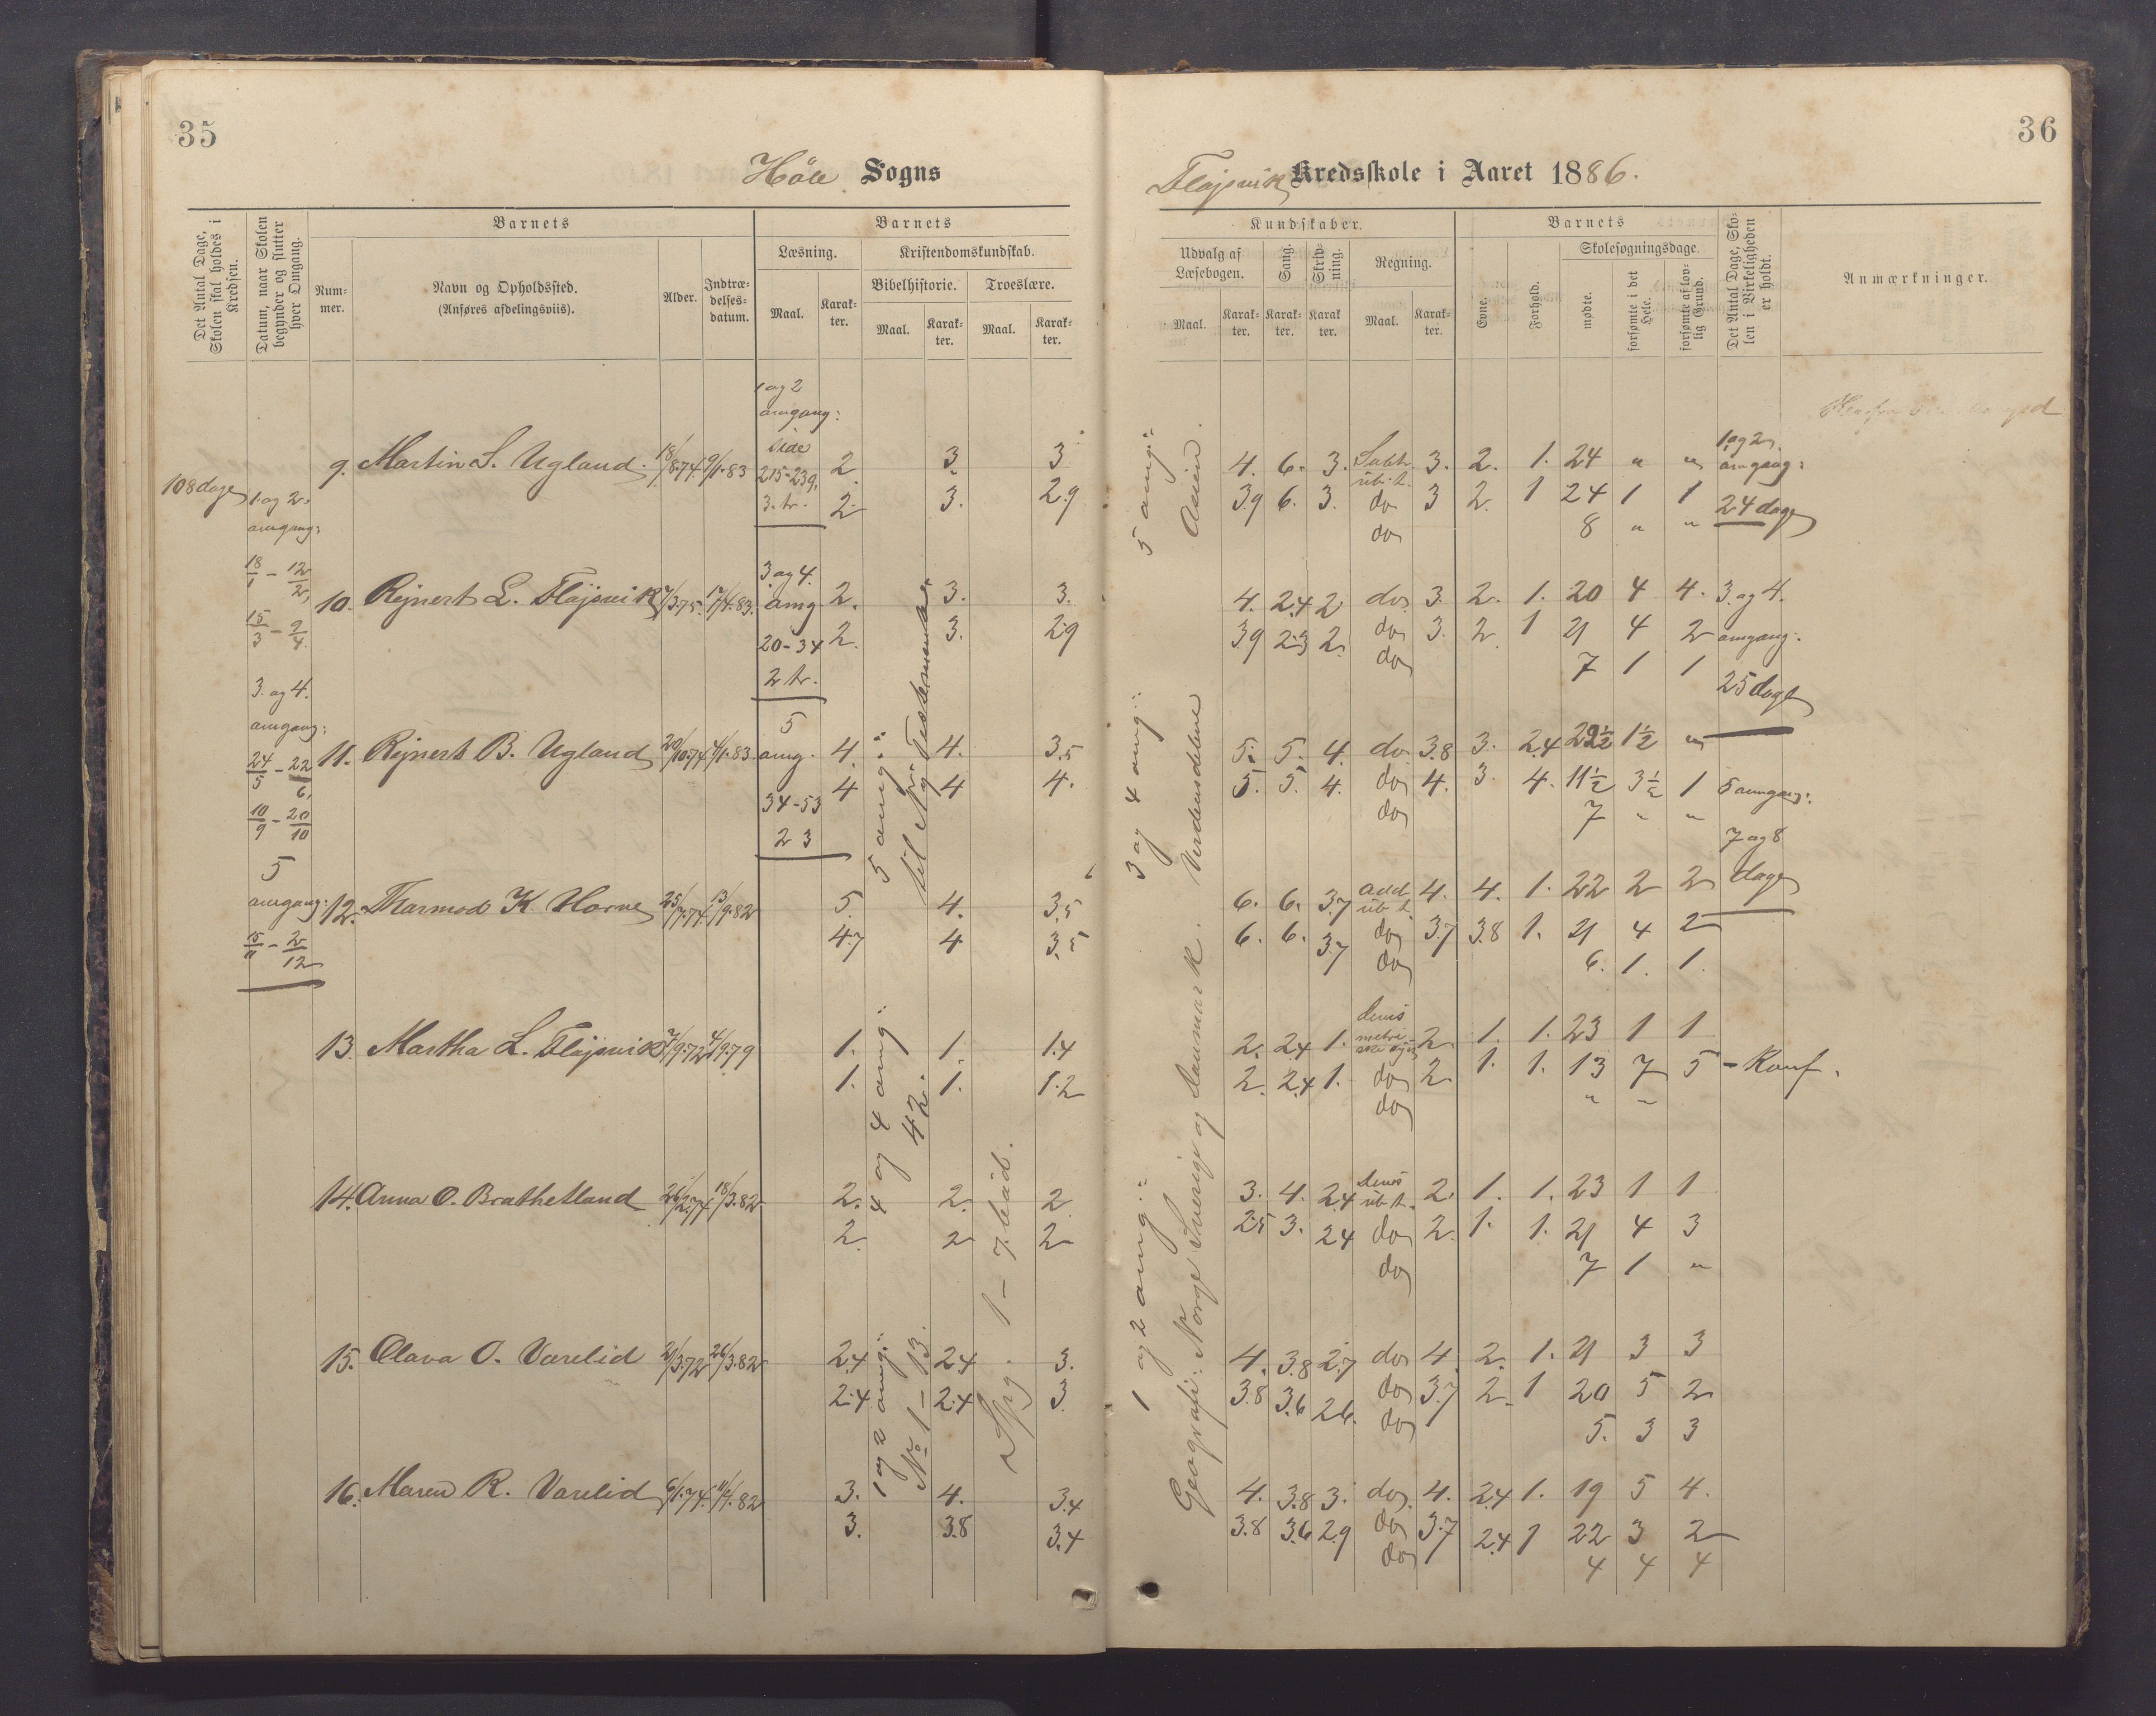 35
Höle Sogns
Det Antal Dage, Skolen skal holdes i Kredsen.
Datum, naar Skolen begynder og slutter hver Omgang.
Barnets
Nummer.
Navn og Opholdssted.
(Anføres afdelingsviis).
Alder.
Indtrædelsesdatum.
Barnets
Læsning.
Maal.
Karakter.
Kristendomskundskab.
Bibelhistorie.
Maal.
Karakter.
Troeslære.
Maal.
Karakter.
108 dage
1 og 2.
omgang:
18/1 - 12/2,
15/3 - 9/4.
3. og 4.
omgang:
24/5 - 22/6,
10/9 - 20/10
5
omgang:
15/11 - 2/12
1 og 2
omgang:
Side
215-239,
3. tr.
3 og 4.
omg.
20-34
2 tr.
5
omg.
34-53
2 3
1 og 2 omg:
No 1 - 13.
4 og 4 omg:
42.
5 omg:
til Ny Testamente.
Spg. 1 - 7. bud.
9. Martin S. Ugland. 18/8.74. 9/1.83 2. 3 3
2. 3. 2.9
10. Rejnert L. Fløjsvik 7/3.75. 17/4.83. 2. 3. 3.
2. 3. 2.9
11. Rejnert B. Ugland 20/10.74 4/1.83. 4. 4. 3.5
4 4 4.
12. Thormod K. Horve 25/7.74. 13/9.82 5. 4. 3.5
4.7 4 3.5
13. Martha L. Fløjsvik 7/9.72 4/9.79 1. 1. 1.4
1. 1. 1.2
14. Anna O. Brathetland 26/2.74 18/3.82 2. 2. 2
2. 2 2
15. Olava O. Varelid 21/3.72 26/3.82 2.4 2.4 3.
2.4 2.4 3
16. Maren R. Varelid 6/1.74. 11/4.82 3. 4. 3.4
3. 3.8 3.4
36
Fløjsvik Kredsskole i Aaret 1886.
Kundskaber.
Udvalg af Læsebogen.
Maal.
Karakter.
Sang.
Karakter.
Skrivning.
Karakter
Regning.
Maal.
Karakter.
Barnets
Evne.
Forhold.
Skolesøgningsdage.
mødte.
forsømte i det Hele.
forsømte af lovlig Grund.
Det Antal Dage, Skolen i Virkeligheden er holdt.
Anmærkninger.
1 og 2 omg:
Geografi: Norge Sverige og Danmark.
3 og 4 omg:
Verdensdelene
5 omg:
Asien.
4. 6. 3. Subtr. ub. t. 3. 2. 1. 24 " "
3.9 6. 3. do 3 2. 1 24 1 1
do 8 " "
4. 2.4 2 do. 3. 2. 1. 20 4 4.
3.9 2.3 2. do 3. 2. 1 21 4 2
do 7 1 1
5. 5. 4. do. 3.8 3. 2.4 22½ 1½ "
5. 5. 4. do 4. 3. 4. 11½ 3½ 1
do 7 " "
6. 6. 3.7 add ub t. 4. 4. 1. 22 2 2
6. 6. 3.7 do 3.7 3.8 1. 21 4 2
do 6. 1. 1.
2. 2.4 1. 2. 1. 1. 23 1 1
2. 2.4 1. do 2. 1. 1. 13 7 5 - Konf.
do " "
3. 4. 2.4 ub t. 2. 1. 1. 23 1 1
2.5 3. 2.4 do 2. 1. 1. 21 4 3
do 7 1 "
4. 3.8 2.7 do 4. 2. 1. 21 3 3
3.8 3.6 2.6. do 3.7 2. 1 20 5 2
do 5. 3 3
4. 3.8 3. do. 4. 2.4 1. 19 5 4.
3.8 3.6 2.9 do 3.7 2.4 1 22 3 2
do 4 4 4
1 og 2.
omgang:
24 dage
3. og 4.
omgang:
25 dage
5 omgang:
7 og 8
dage